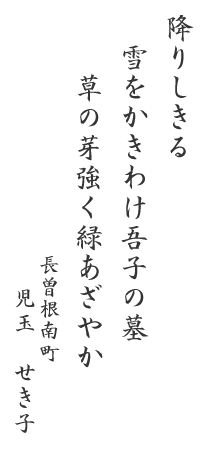 降りしきる
雪をかきわけ吾子の墓
草の芽強く緑あざやか
長曽根南町
児玉　せき子